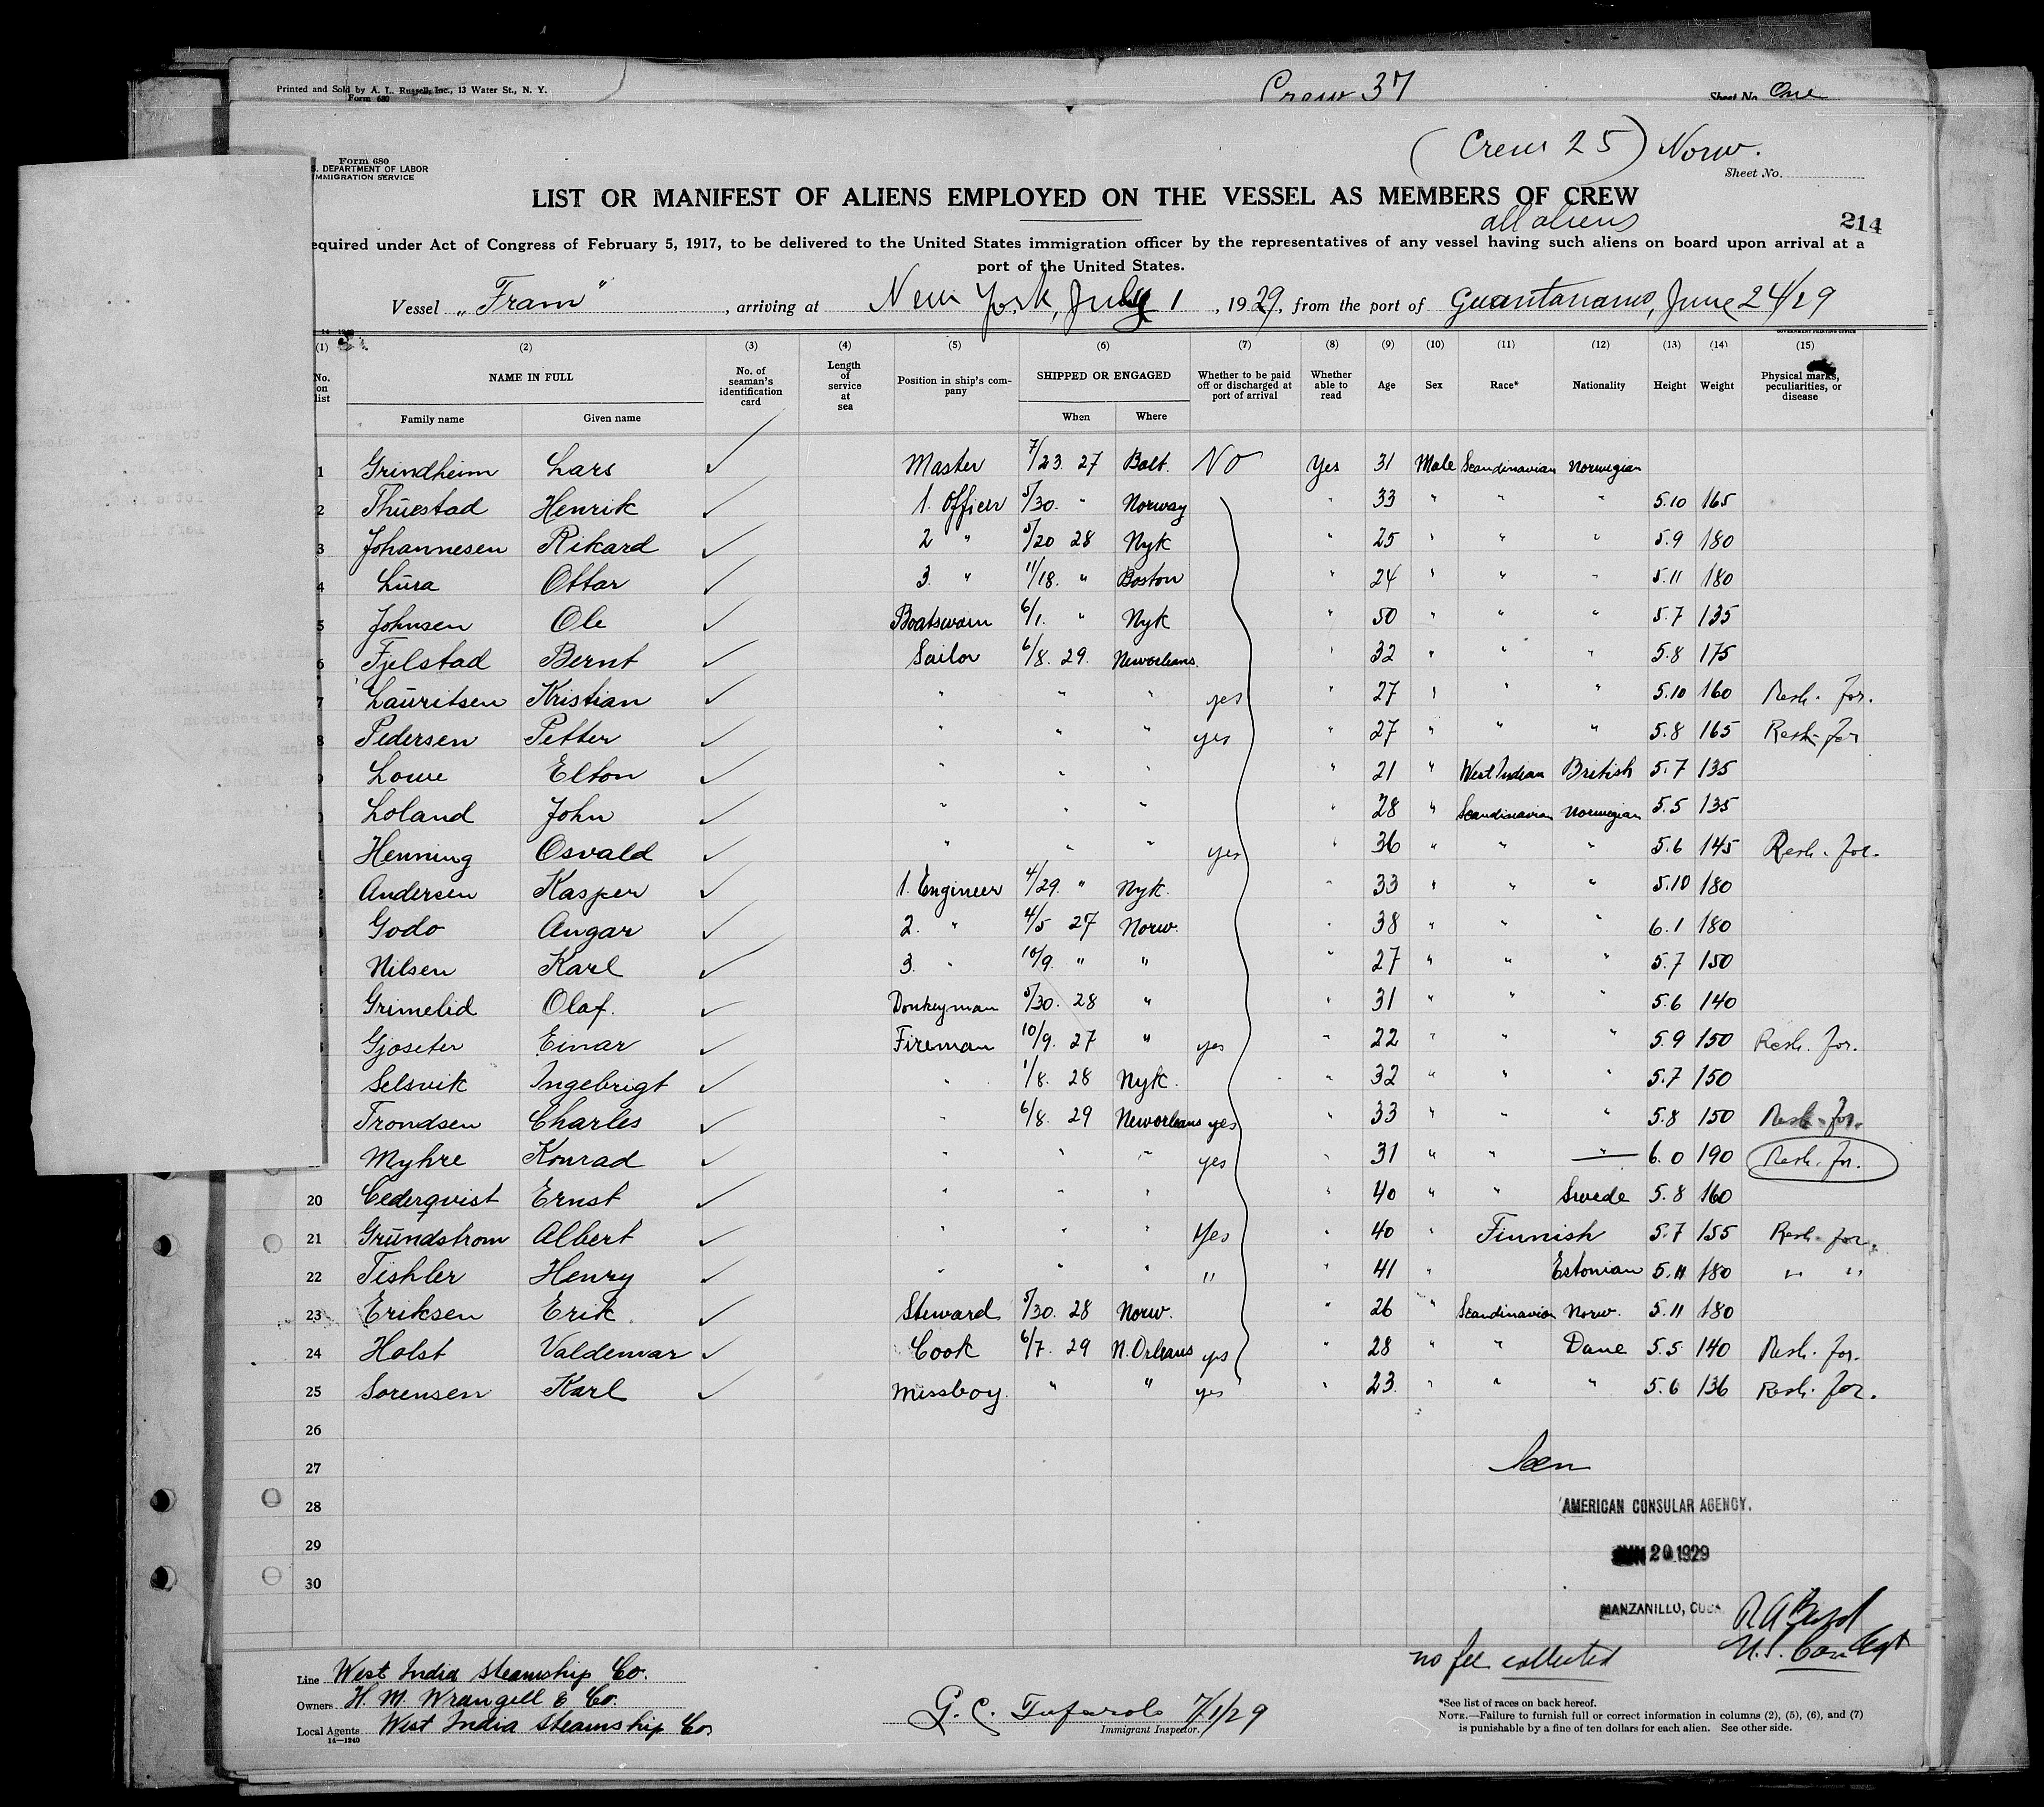 Printed and Sold by A. L. Russell, Inc., 13 Water St., N. Y.
Form 680
Crew 37
Sheet No. One
(Crew 25) Norw.
Form 680
S. DEPARTMENT OF LABOR
IMMIGRATION SERVICE
Sheet No.
LIST OR MANIFEST OF ALIENS EMPLOYED ON THE VESSEL AS MEMBERS OF CREW
all aliens
214
equired under Act of Congress of February 5, 1917, to be delivered to the United States immigration officer by the representatives of any vessel having such aliens on board upon arrival at a
port of the United States.
Vessel "Fram", arriving at New York, July 1, 1929, from the port of Guantanamo, June 24/29
GOVERNMENT PRINTING OFFICE
(1) (2) (3) (4) (5) (6) (7) (8) (9) (10) (11) (12) (13) (14) (15)
No. on list NAME IN FULL No. of seaman's identification card Length of service at sea Position in ship's company SHIPPED OR ENGAGED Whether to be paid off or discharged at port of arrival Whether able to read Age Sex Race* Nationality Height Weight Physical marks, peculiarities, or disease
Family name Given name When Where
1 Grindheim Lars Master 7/23. 27 Balt. No Yes 31 Male Scandinavian Norwegian
2 Thuestad Henrik 1. Officer 5/30. " Norway " 33 " " " 5.10 165
3 Johannesen Rikard 2 " 5/20 28 Nyk " 25 " " " 5.9 180
4 Lura Ottar 3. " 11/18. " Boston " 24 " " " 5.11 180
5 Johnsen Ole Boatswain 6/1. " Nyk " 50 " " " 5.7 135
6 Fjelstad Bernt Sailor 6/8. 29. Neworleans. " 32 " " " 5.8 175
7 Lauritsen Kristian " " " yes " 27 " " " 5.10 160 Resh. for.
8 Pedersen Petter " " " yes " 27 " " " 5.8 165 Resh. for
Lowe Elton " " " " 21 " West Indian British 5.7 135
Loland John " " " " 28 " Scandinavian Norwegian 5.5 135
Henning Osvald " " " yes " 36 " " " 5.6 145 Resh. for.
2 Andersen Kasper 1. Engineer 4/29. " Nyk. " 33 " " " 5.10 180
3 Godo Angar 2. " 4/5 27 Norw. " 38 " " " 6.1 180
Nilsen Karl 3. " 10/9. " " " 27 " " " 5.7 150
Grimelid Olaf. Donkeyman 5/30. 28 " " 31 " " " 5.6 140
Gjoseter Einar Fireman 10/9. 27 " yes " 22 " " " 5.9 150 Resh. for.
Selsvik Ingebrigt " 1/8. 28 Nyk. " 32 " " " 5.7 150
Trondsen Charles " 6/8. 29 Neworleans yes " 33 " " " 5.8 150 Resh. for.
Myhre Konrad " " " yes " 31 " " " 6.0 190 Resh. for.
20 Cederqvist Ernst " " " " 40 " " Swede 5.8 160
21 Grundstrom Albert " " " Yes " 40 " Finnish 5.7 155 Resh. for.
22 Tishler Henry " " " " " 41 " Estonian 5.11 180 " "
23 Eriksen Erik. Steward 5/30. 28 Norw. " 26 " Scandinavian Norw. 5.11 180
24 Holst Valdemar Cook 6/7. 29 N. Orleans yes " 28 " " Dane 5.5 140 Resh. for.
25 Sorensen Karl Messboy. " " yes " 23. " " " 5.6 136 Resh. for.
26
27
28
29
30
Seen
AMERICAN CONSULAR AGENCY.
JUN 20 1929
MANZANILLO, CUBA
U.S. Con Agt
no fee collected
Line West India Steamship Co.
Owners H. M. Wrangell & Co.
Local Agents West India Steamship Co.
14—1240
G. C. Tufarolo 7/1/29
Immigrant Inspector.
*See list of races on back hereof.
NOTE.—Failure to furnish full or correct information in columns (2), (5), (6), and (7)
is punishable by a fine of ten dollars for each alien. See other side.